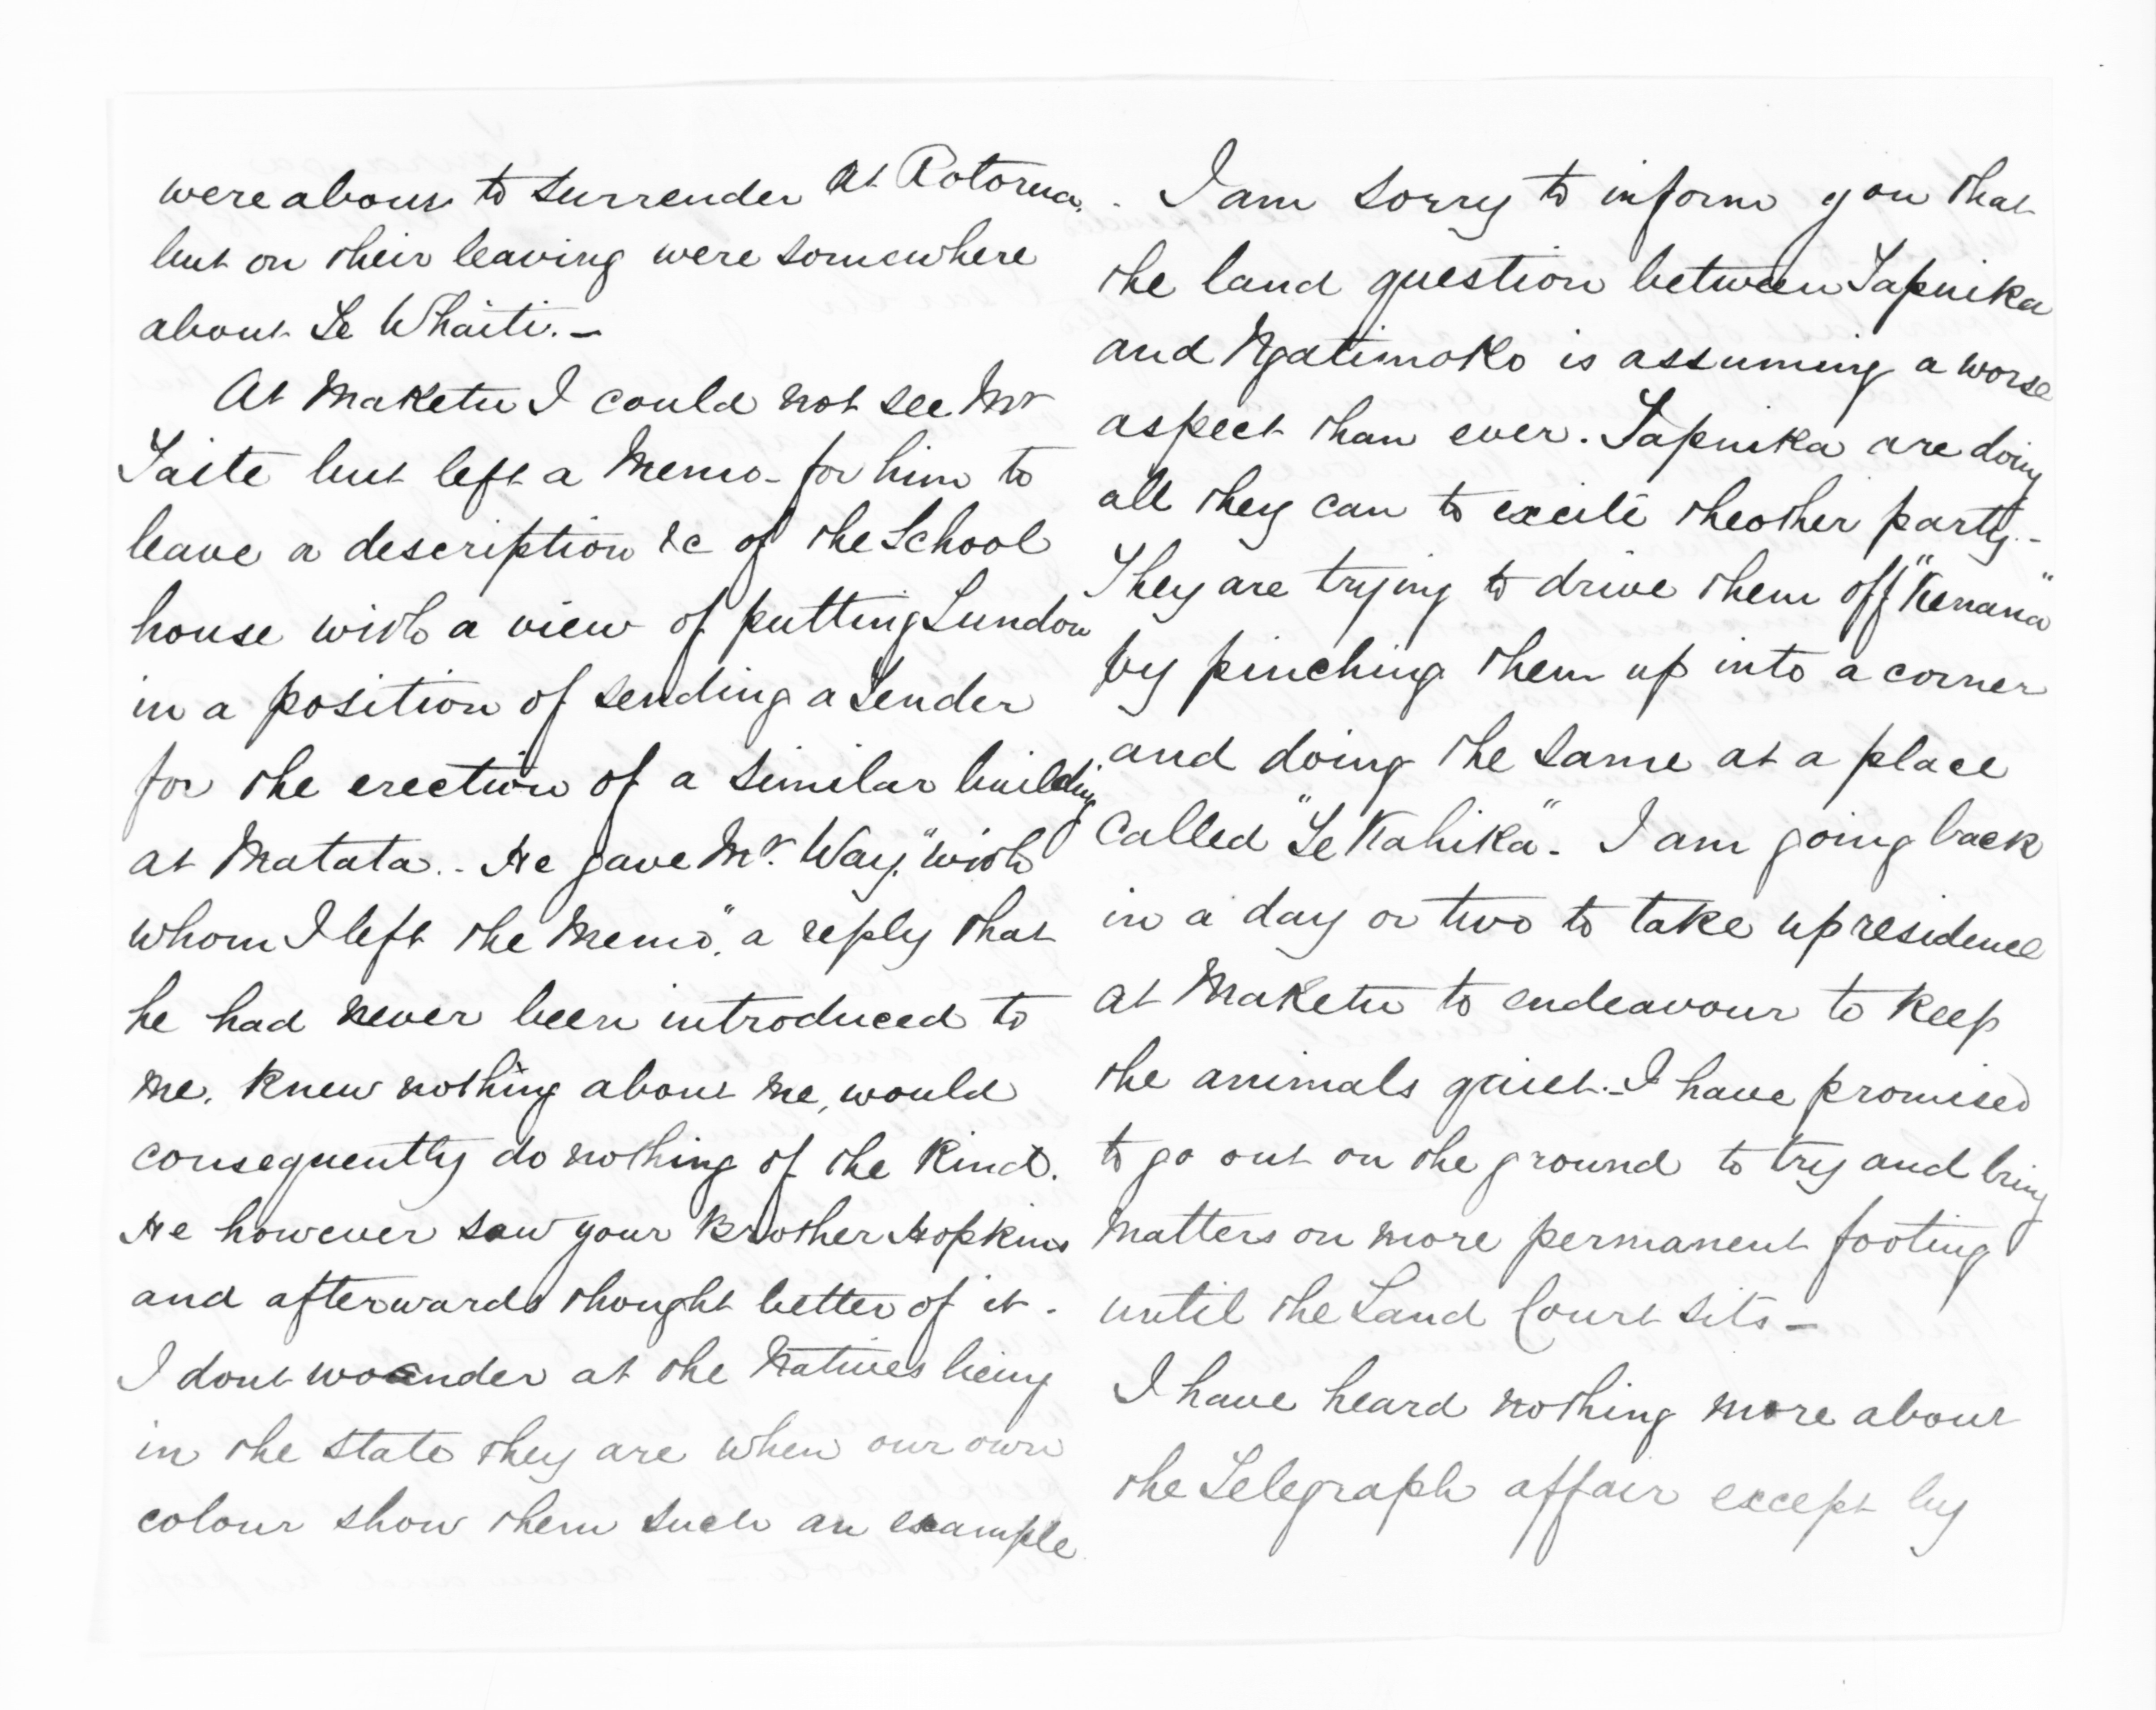 were about to surrender at Rotorua,
but on their leaving were somewhere
about Te Whaiti. –
At Maketu I could not see Mr
Taite but left a Memo– for him to
leave a description &c of the School
house with a view of putting Lundon
in a position of sending a Tender
for the erection of a similar building
at Matata. – He gave Mr. Way, "with
whom I left the Memo", a reply that
he had never been introduced to
me, Knew nothing about me, would
consequently do nothing of the Kind.
He however saw your Brother Hopkins
and afterwards thought better of it.
I dont wonder at the Natives being
in the state they are when our own
colour show them such an example
I am sorry to inform you that
the land question between Tapuika
and Ngatimoko is assuming a worse
aspect than ever. Tapuika are doing
all they can to excite the other party. –
They are trying to drive them off "Kenana"
by pinching them up into a corner
and doing the same at a place
called "Te Kahika". I am going back
in a day or two to take up residence
at Maketu to endeavour to Keep
the animals quiet. – I have promised
to go out on the ground to try and bring
matters on more permanent footing
until the Land Court sits –
I have heard nothing more about
the Telegraph affair except by